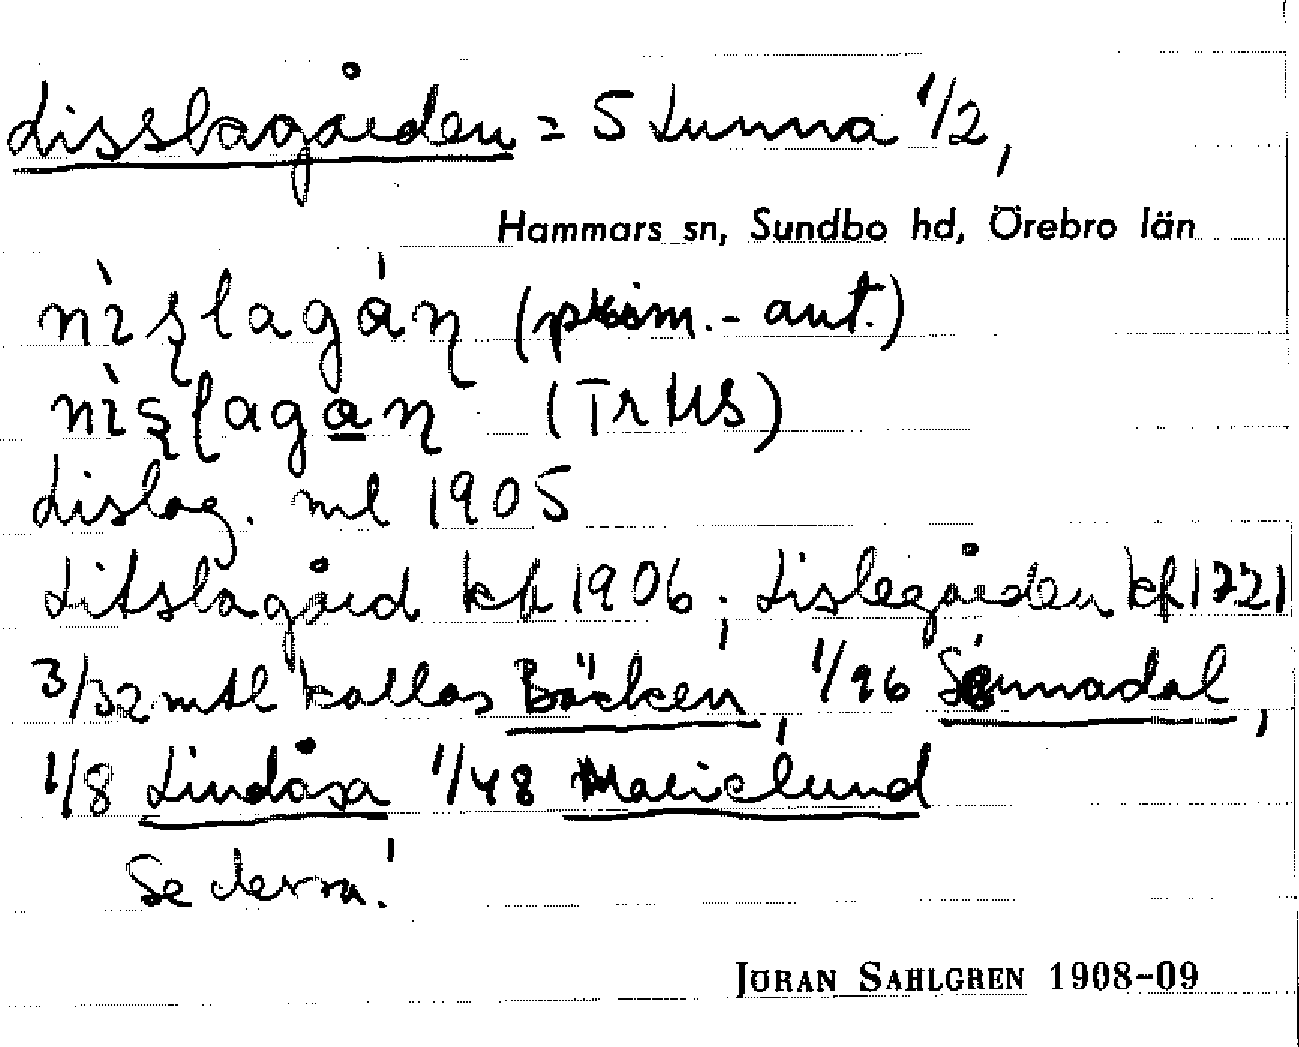 Lisslagården = S Lunna 1/2,
Hammars sn, Sundbo hd, Örebro län
nìʂlagán (prim.-ant.)
nìʂlagan (Tr MS)
Lislag. ml 1905
Litslagård kf 1906; Lislegården kf 1221
3/32 mtl kallas Bäcken, 1/96 Sännadal,
1/8 Lindåsa 1/48 Marielund
Se dessa!
JÖRAN SAHLGREN 1908–09